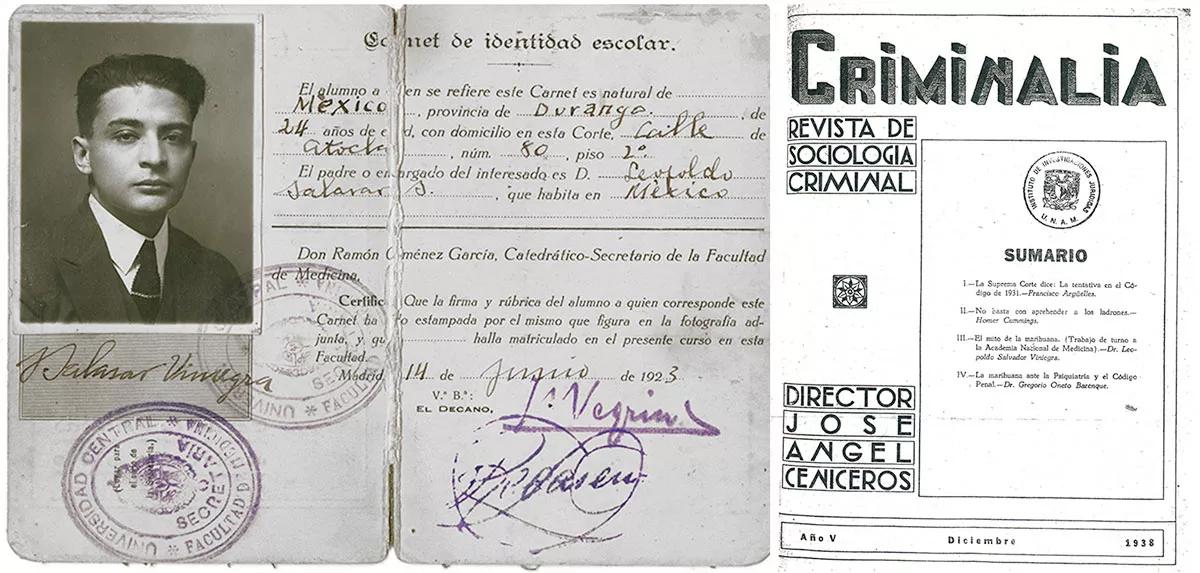 Carnet de identidad escolar.
El alumno a en se refiere este Carnet es natural de
México, provincia de Durango, de
24 años de e d, con domicilio en esta Corte, Calle de
Atocha, núm. 80, piso 2º
El padre o en argado del interesado es D. Leopoldo
Salasar S., que habita en México
Don Ramón G ménez García, Catedrático-Secretario de la Facultad
de Medicina,
Certific Que la firma y rúbrica del alumno a quien corresponde este
Carnet ha do estampada por el mismo que figura en la fotografía ad-
junta, y qu halla matriculado en el presente curso en esta
Facultad.
Madrid, 14 de junio de 1923
V.º B.º:
EL DECANO,
LSalasar Viniegra
UNIVERSIDAD CENTRAL * FACULTAD DE MEDICINA *
SECRETARIA
CRIMINALIA
REVISTA DE
SOCIOLOGIA
CRIMINAL
INSTITUTO DE INVESTIGACIONES JURIDICAS
U. N. A. M.
SUMARIO
I.—La Suprema Corte dice: La tentativa en el Có-
digo de 1931.—Francisco Argüelles.
II.—No basta con aprehender a los ladrones.—
Homer Cummings.
III.—El mito de la marihuana. (Trabajo de turno a
la Academia Nacional de Medicina).—Dr. Leo-
poldo Salvador Viniegra.
IV.—La marihuana ante la Psiquiatría y el Código
Penal.—Dr. Gregorio Oneto Barenque.
DIRECTOR
JOSE
ANGEL
CENICEROS
Año V Diciembre 1938